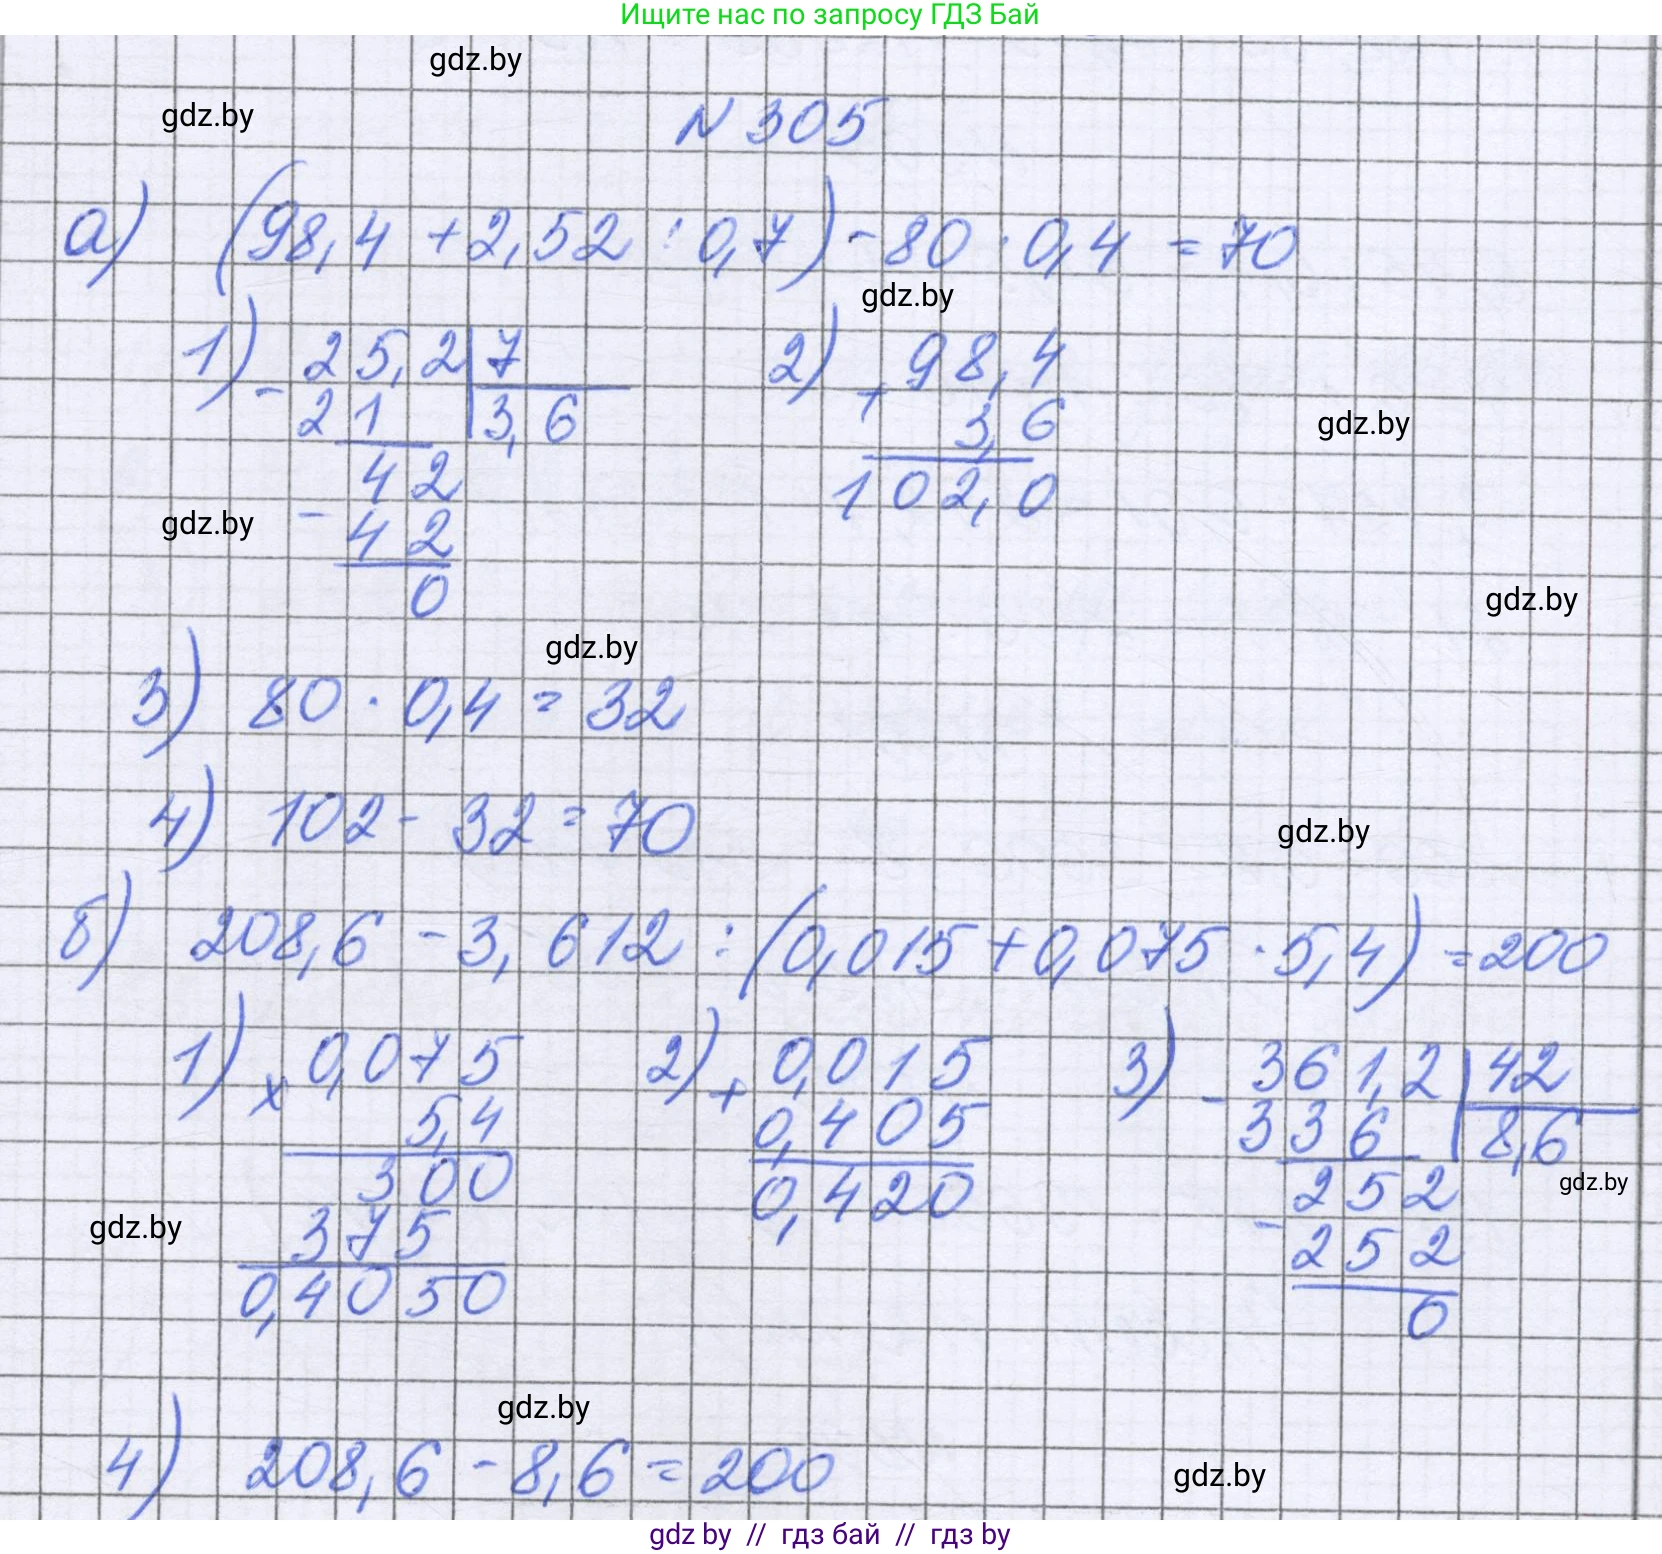 Ищите нас по запросу ГДЗ Бай
gdz.by
gdz.by
N 305
а) (98,4 + 2,52 : 0,7) - 80 · 0,4 = 70
gdz.by
1) - 25,2 | 7 2) + 98,4
21 3,6 3,6
gdz.by
42 102,0
gdz.by
- 42
0
gdz.by
gdz.by
3) 80 · 0,4 = 32
4) 102 - 32 = 70
gdz.by
б) 208,6 - 3,612 : (0,015 + 0,075 · 5,4) = 200
1) × 0,075 2) + 0,015 3) - 361,2 | 42
5,4 0,405 336 8,6
300 0,420 252
gdz.by
gdz.by
375 - 252
0,4050 0
gdz.by
4) 208,6 - 8,6 = 200
gdz.by
gdz by // гдз бай // гдз by